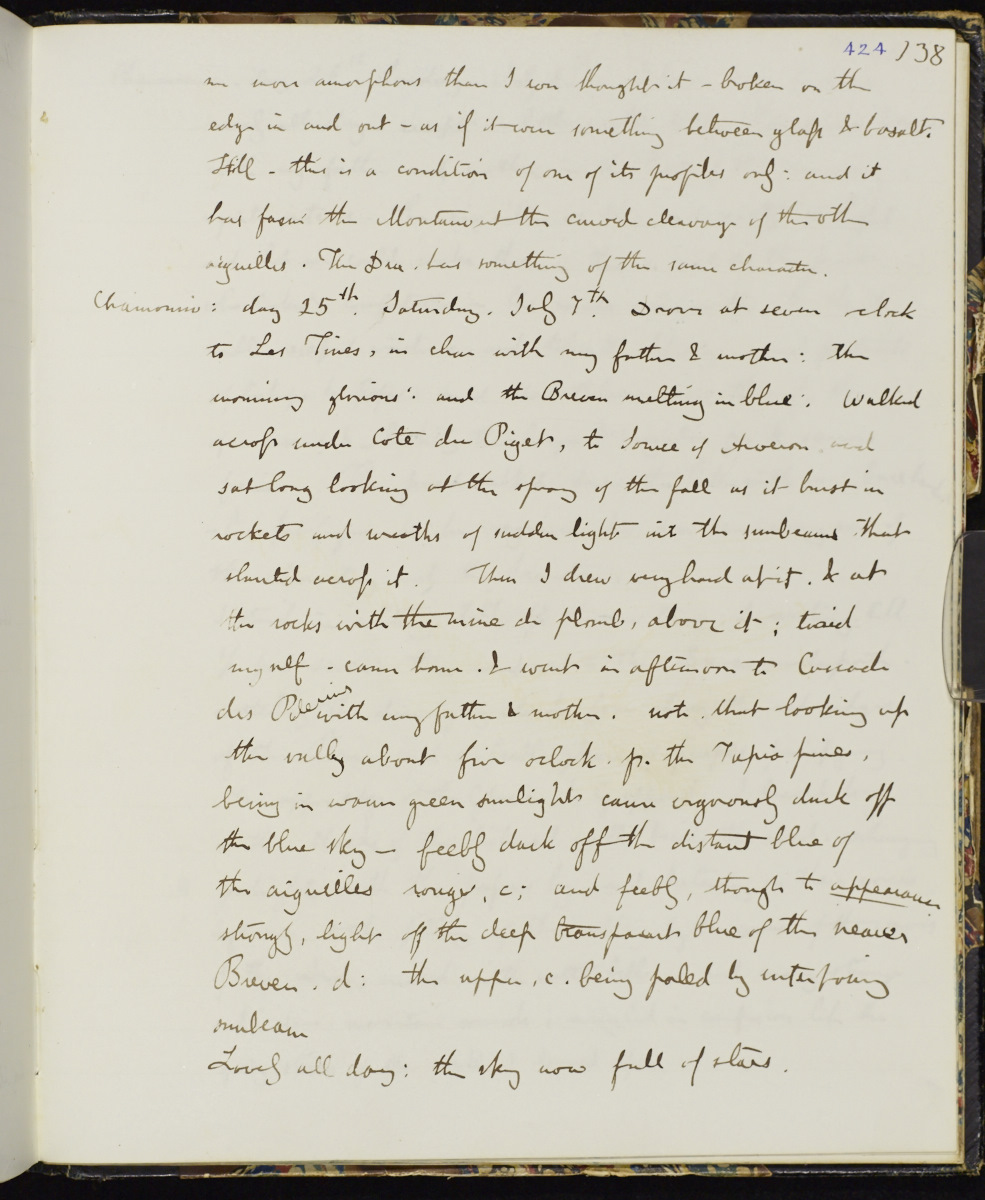 424 138
me more amorphous than I ever thought it - broken on the
edge in and out - as if it were something between glass & basalt.
Still - this is a condition of one of its profiles only: and it
has facing the Montanvert the curved cleavage of the other
aiguilles. The Dru. has something of the same character.
Chamonix: day 25th. Saturday. July 7th. Drove at seven oclock
to Les Tines, in char with my father & mother: the
morning glorious: and the Breven melting in blue: Walked
across under Cote du Piget, to Source of Arveron and
sat long looking at the spray of the fall as it burst in
rockets and wreaths of sudden light into the sunbeams that
slanted across it. Then I drew very hard at it. & at
the rocks with the mine de plomb, above it; tired
myself - came home. & went in afternoon to Cascade
des Pelerins with my father & mother. note. that looking up
the valley about five oclock. p. the Tapia pines,
being in warm green sunlight came vigorously dark off
the blue sky - feebly dark off the distant blue of
the aiguilles rouges, c; and feebly, though to appearance
strongly, light off the deep transparent blue of the nearer
Breven. d: the upper, c. being paled by interposing
sunbeam
Lovely all day: the sky now full of stars.